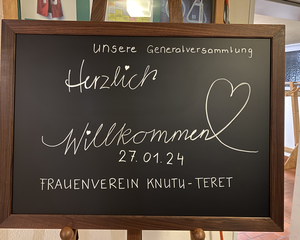 Unsere Generalversammlung
Herzlich
Willkommen
27.01.24
FRAUENVEREIN KNUTU-TERET